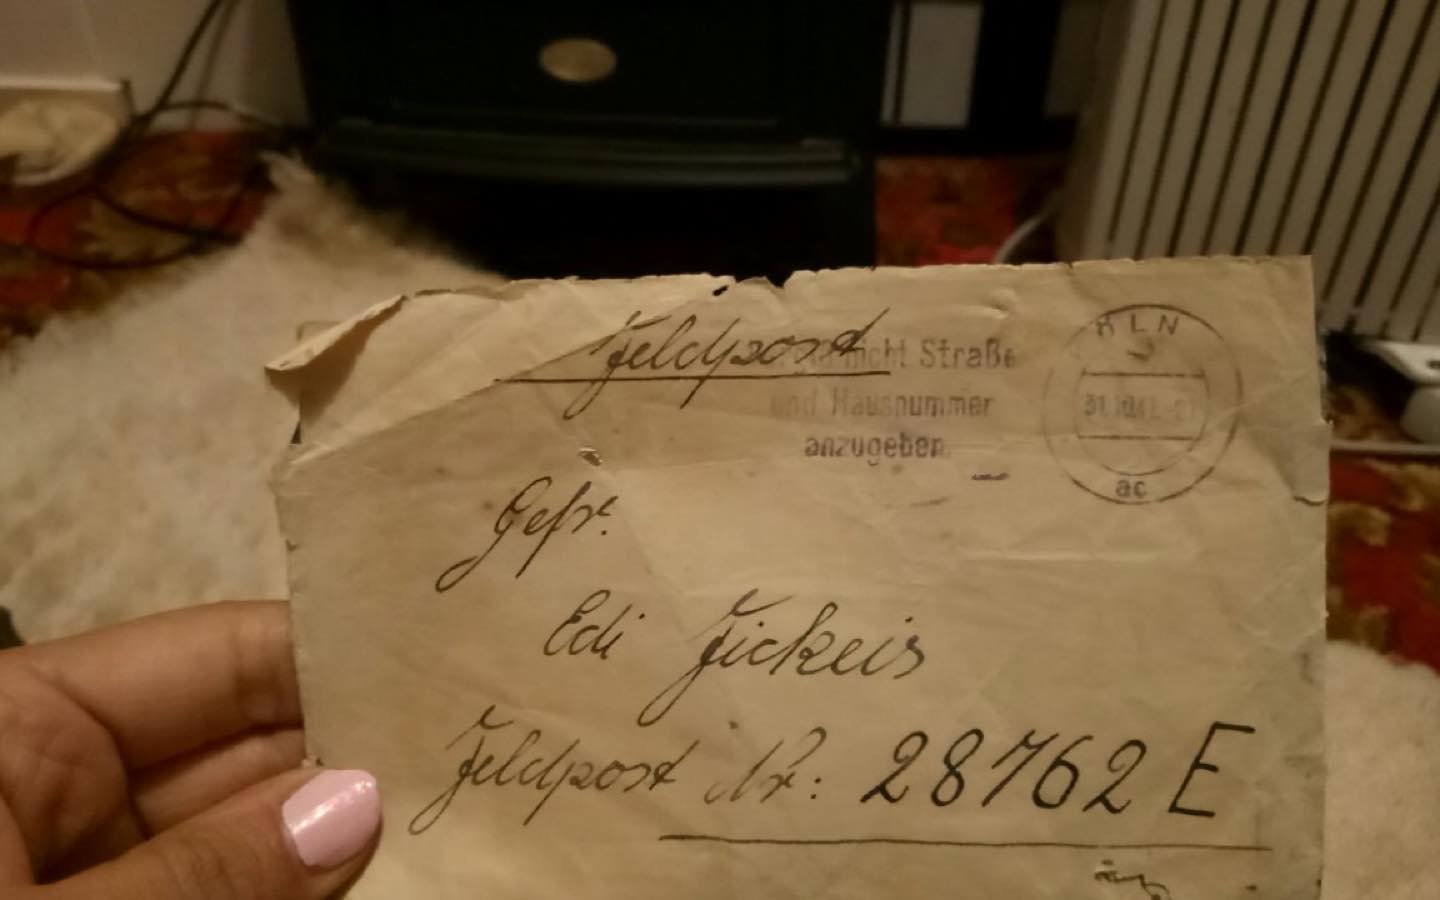 Feldpost
nicht Straße
und Hausnummer
anzugeben
KLN
31.10.41
ac
Gefr.
Edi Fickeis
Feldpost Nr: 28762 E